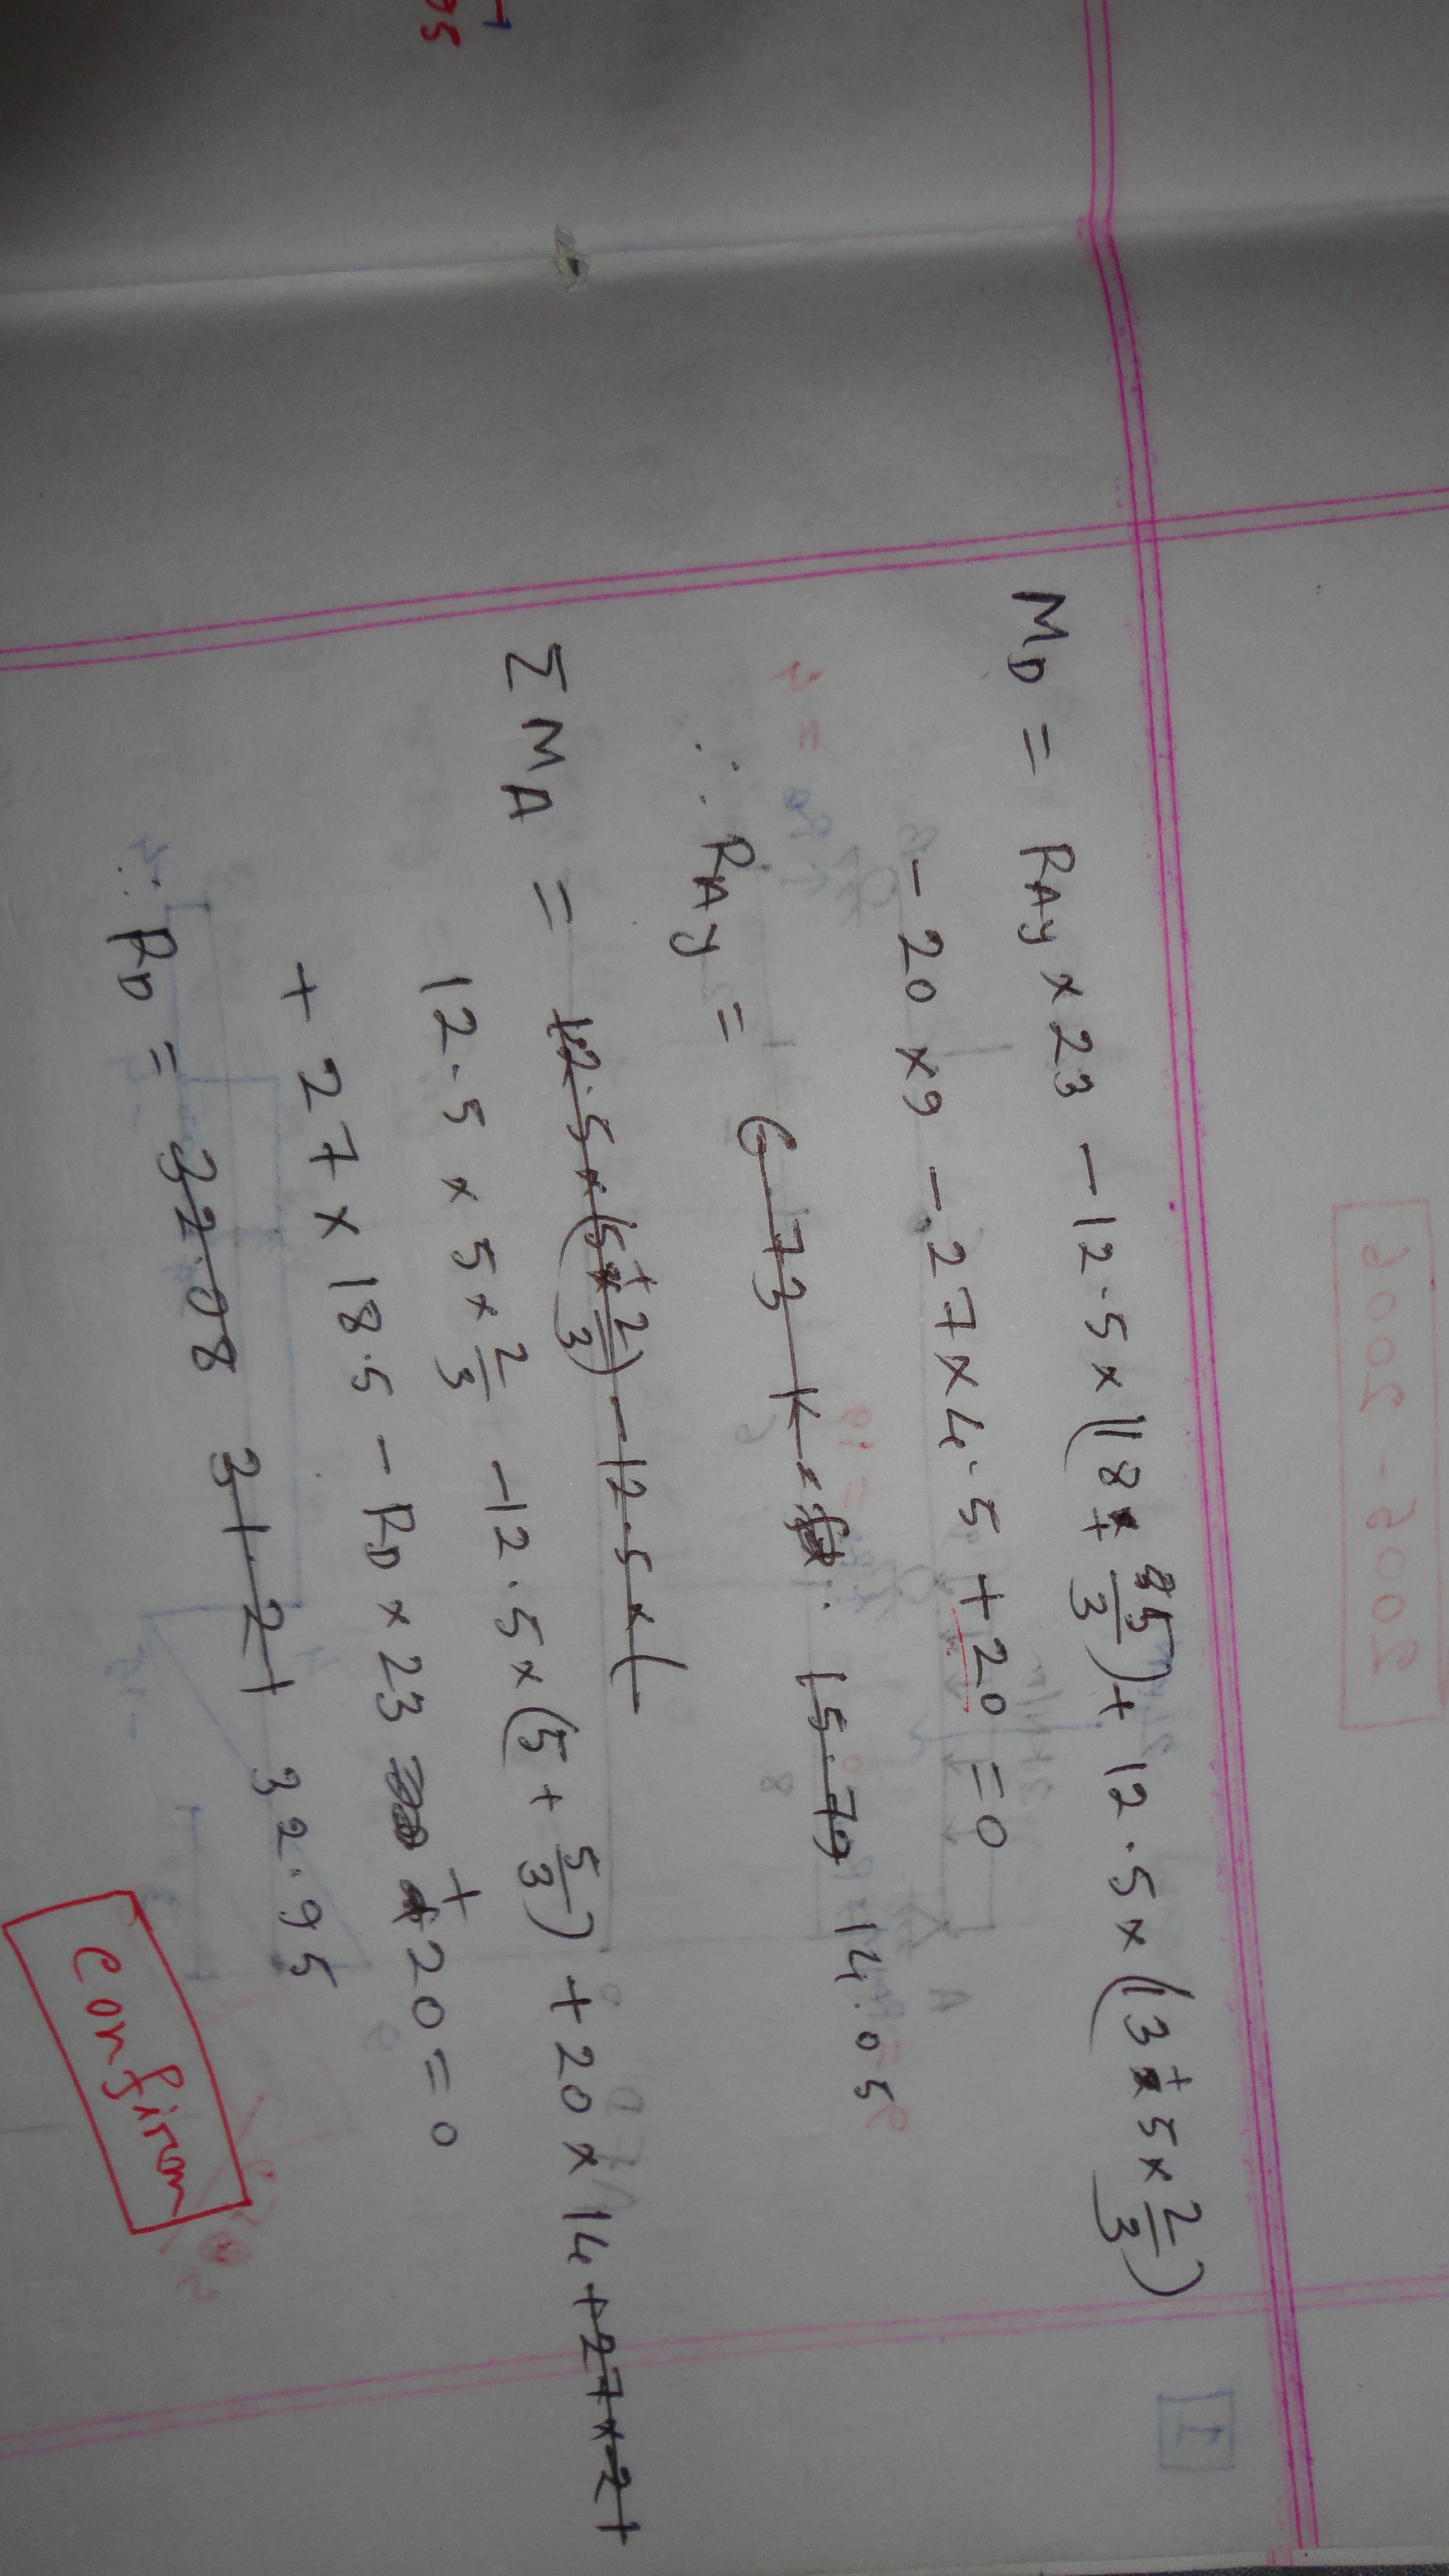 M_D = R_Ay × 23 - 12.5 × (18 + 5/3) + 12.5 × (13 + 5 × 2/3)
- 20 × 9 - 27 × 4.5 + 20 = 0
∴ R_Ay = 6.73 k 15.79 14.05
ΣM_A = 12.5 × (5 + 2/3) - 12.5 × (
12.5 × 5 × 2/3 - 12.5 × (5 + 5/3) + 20 × 14 + 27 × 21
+ 27 × 18.5 - R_D × 23 + 20 = 0
∴ R_D = 32.08 31.21 32.95
confirm
2005-2006